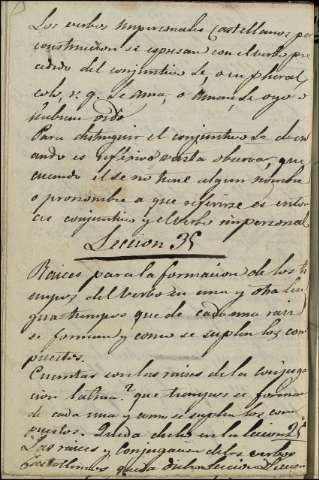 Los verbos Impersonales Castellanos por
construccion se espresan con el verbo pre
cedido del conjuntivo se, o en plural
solo, v. g. se ama, o aman, se oyo o
hubieron oido.
Para distinguir el conjuntivo se de cu
ando es reflexivo basta observar, que
cuando el se no tiene algun nombre
o pronombre a que referirse es enton
ces conjuntivo y el verbo impersonal
Leccion 35
Raices para la formacion de los ti
empos del verbo en una y otra len
gua tiempos que de cada una raiz
se forman y como se suplen los com
puestos.
Cuantas son las raices de la conjuga
cion latina? que tiempos se forman
de cada una y como se suplen los com
puestos. Queda dicho en la leccion 25
Las raices y conjugacion de los verbos
Castellanos queda dicho leccion